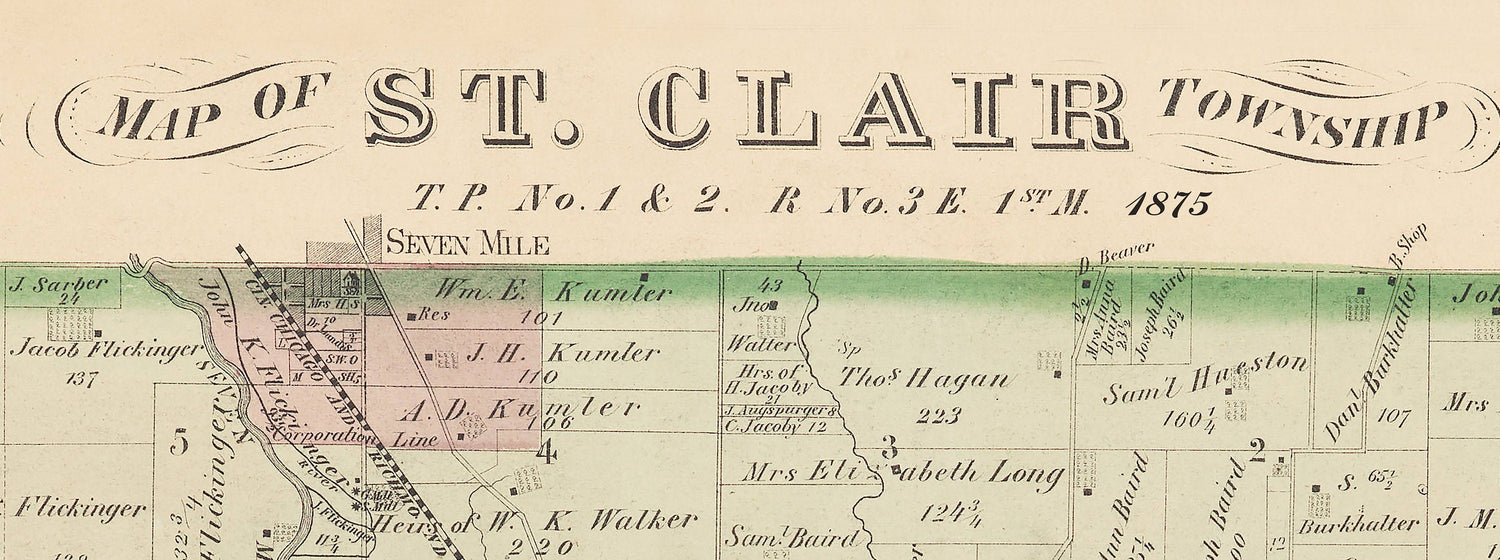 MAP OF ST. CLAIR TOWNSHIP
T.P. No.1 & 2. R No.3 E. 1ST M. 1875
SEVEN MILE
D. Beaver
B. Shop
J. Sarber
24
Jacob Flickinger
137
5
Flickinger
John K. Flickinger
SEVEN
RIVER
CIN. CHICAGO AND RICHMOND
Mrs H.S
10
S.W.O
M
Wm. E. Kumler
Res 101
J. H. Kumler
110
A. D. Kumler
106
Corporation Line
4
G. Mill
S. Mill
J. Flickinger
11 3/4
Flickinger
32 3/4
Heirs of W. K. Walker
220
43
Jno
Walter
Hrs. of
H. Jacoby
21
J. Augspurger 8
C. Jacoby 12
Sp
Thos Hagan
223
3
Mrs Elizabeth Long
124 3/4
Saml. Baird
2 1/2
Mrs Anna Baird
23 1/2
Joseph Baird
26 1/2
Sam'l Hueston
160 1/4
2
Baird
Baird
12
Danl Burkhalter
107
S. 65 1/2
Burkhalter
Mrs
J. M.